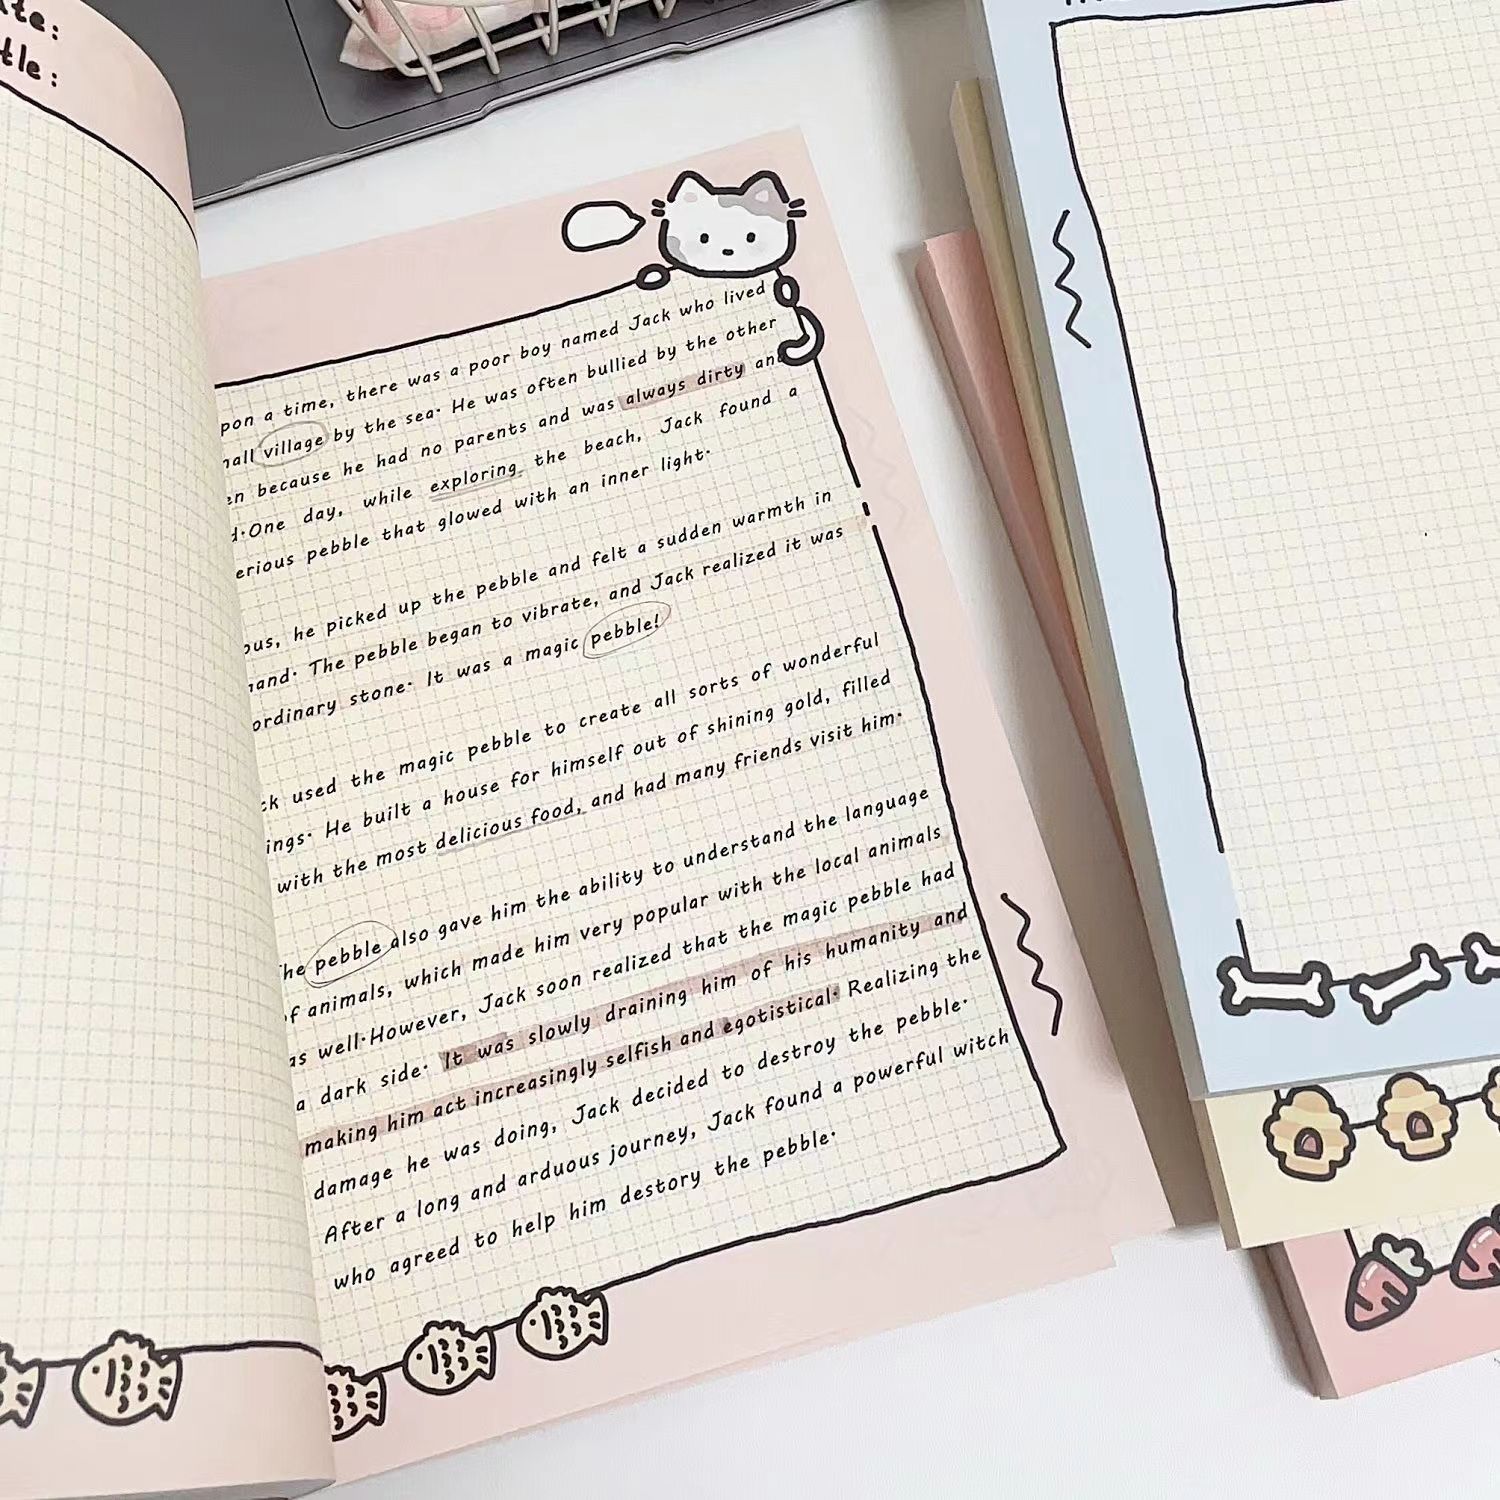 tle:
pon a time, there was a poor boy named Jack who lived
village by the sea. He was often bullied by the other
because he had no parents and was always dirty and
One day, while exploring the beach, Jack found a
erious pebble that glowed with an inner light.
he picked up the pebble and felt a sudden warmth in
The pebble began to vibrate, and Jack realized it was
ordinary stone. It was a magic pebble!
used the magic pebble to create all sorts of wonderful
ings. He built a house for himself out of shining gold, filled
with the most delicious food, and had many friends visit him.
he pebble also gave him the ability to understand the language
of animals, which made him very popular with the local animals
as well.However, Jack soon realized that the magic pebble had
a dark side. It was slowly draining him of his humanity and
making him act increasingly selfish and egotistical. Realizing the
damage he was doing, Jack decided to destroy the pebble.
After a long and arduous journey, Jack found a powerful witch
who agreed to help him destory the pebble.